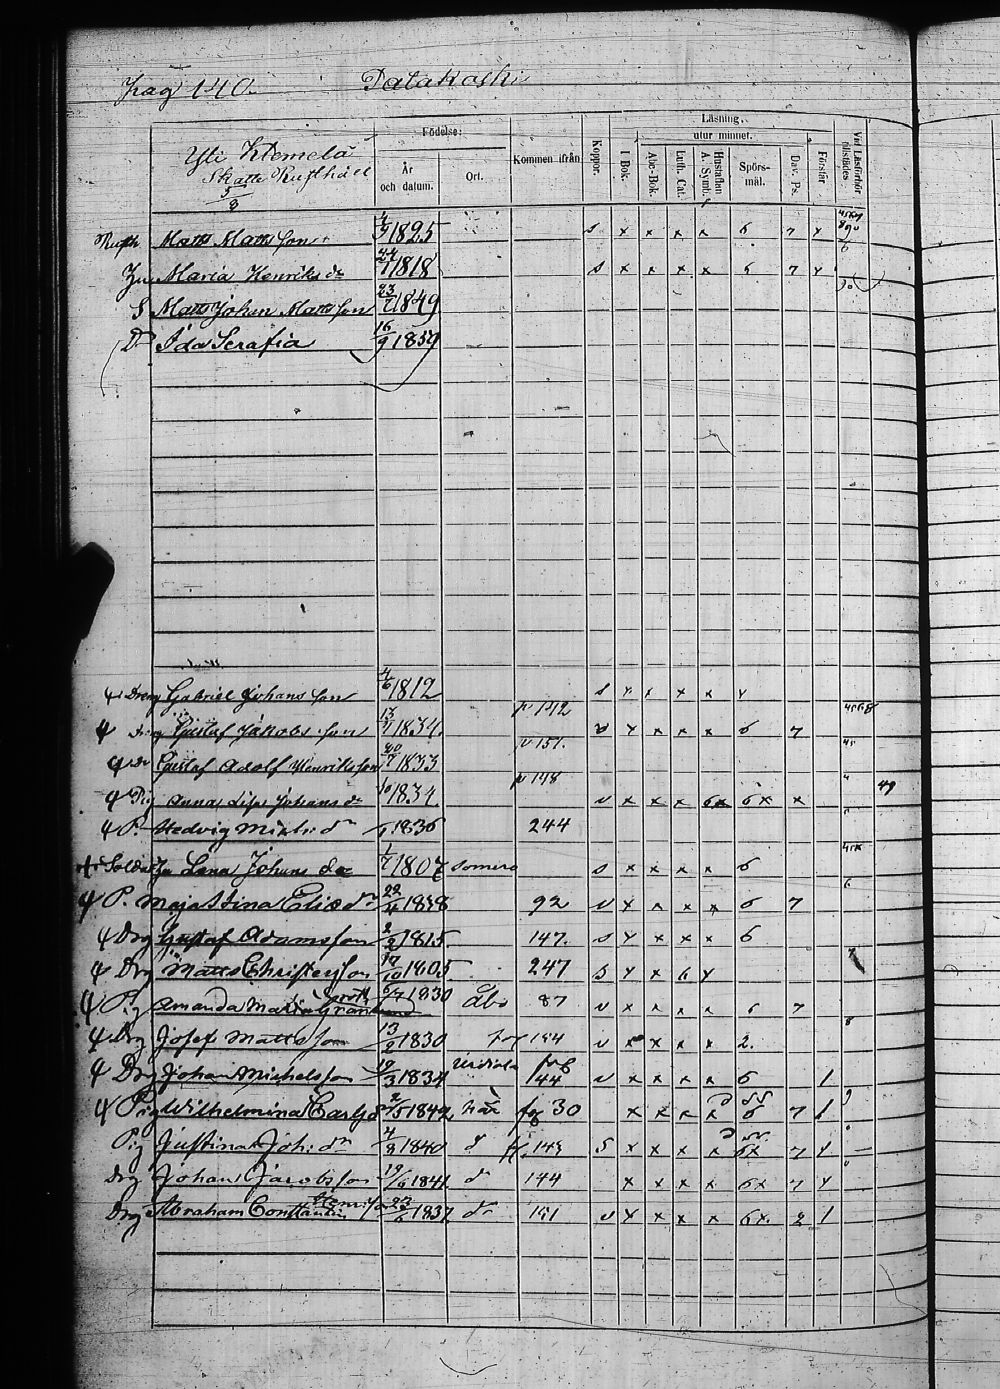 Pag 140. Patakoski
Yli Klemelä
Skatte Rusthåll
5/8
Födelse:
År och datum.
Ort.
Kommen ifrån
Koppor.
Läsning.
utur minnet.
I Bok.
Abc-Bok.
Luth. Cat.
Hustaflan A. Symb.
Spörs-mål.
Dav. Ps.
Förstår
Vid Läsförhör tillstädes
Rusth Matts Matts son 1825 s x x x x 6 7 x
Hu Maria Henriks dr 1818 s x x x x 6 7 x
S Matts Johan Matts son 23/7 1849
Dr Ida Serafia 16/9 1859
Dreng Gabriel Johans son 4/6 1812 s x x x x x
Gustaf Jakobs son 1834. p 142 v x x x x 6 7
dr Gustaf Adolf Henriksson 20/7 1833 p 151.
Pig Anna Lisa Johans dr 1834 p 148 v x x x 6x 6x x 49
P. Hedvig Mich: dr 1836 244
Soldat Hu Lena Johans dr 1/7 1807 Somero s x x x x 6
P. Maja Stina Elias dr 22/4 1838 92 v x x x x 6 7
Drg Gustaf Adamsson 2/2 1815. 147. s x x x x 6
Drg Matts Christersson 17/10 1805 247 s x x 6 x
Pig Amanda Maria Granlund 6/7 1830 Åbo 87 v x x x x 6 7
Drg Josef Mattsson 13/2 1830 154 v x x x x 2.
Drg Johan Michelsson 19/3 1834 144 v x x x x 6 1
Pig Wilhelmina Carls dr 2/5 1842 här fg 30 x x x x 6 7 1
Pig Justina Joh: dr 4/8 1840 d 143 s x x x x 6x 7 1
Drg Johan Jacobsson 19/6 1841 d 144 x x x x 6x 7 x
Drg Abraham Constantin Henriksson 27/6 1837 dr 151 v x x x x 6x. 2 1